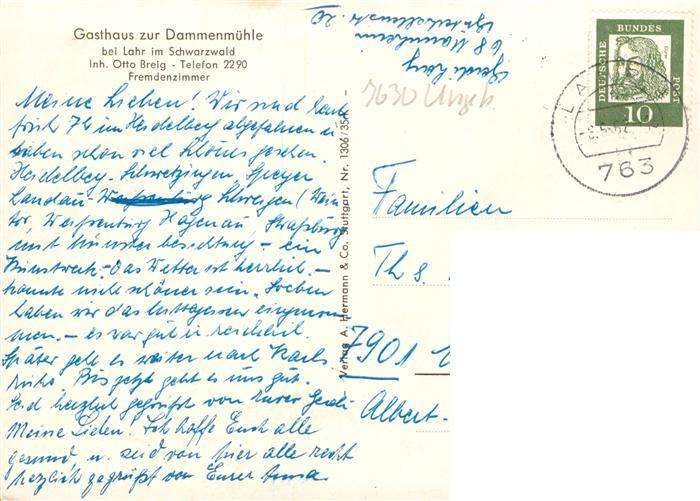 Gasthaus zur Dammenmühle
bei Lahr im Schwarzwald
Inh. Otto Breig - Telefon 2290
Fremdenzimmer
Meine Lieben! Wir sind heute
früh 7h in Heidelberg abgefahren u.
haben schon viel Schönes gesehen.
Heidelbg - Schwetzingen, Speyer
Landau - Schweigen (Wein
tor, Weißenburg Hagenau, Straßburg
mit Münsterbesichtung - ein
Kunstwerk. - Das Wetter ist herrlich. -
konnte nicht schöner sein. Soeben
haben wir das Mittagessen eingenom
men. - es war gut u. reichlich.
Später geht es weiter nach Karls
ruhe. Bis jetzt geht es uns gut.
Seid herzlich gegrüßt von Eurer Gerdi
Meine Lieben! Ich hoffe Euch alle
gesund u. seid von hier alle recht
herzlich gegrüßt von Eurer Anna
Verlag A. Hermann & Co. Stuttgart, Nr. 1306/35R
Gerdi
68 Mannheim
7630
DEUTSCHE BUNDESPOST
10
763
Familien
Ths.
7901
Albert-